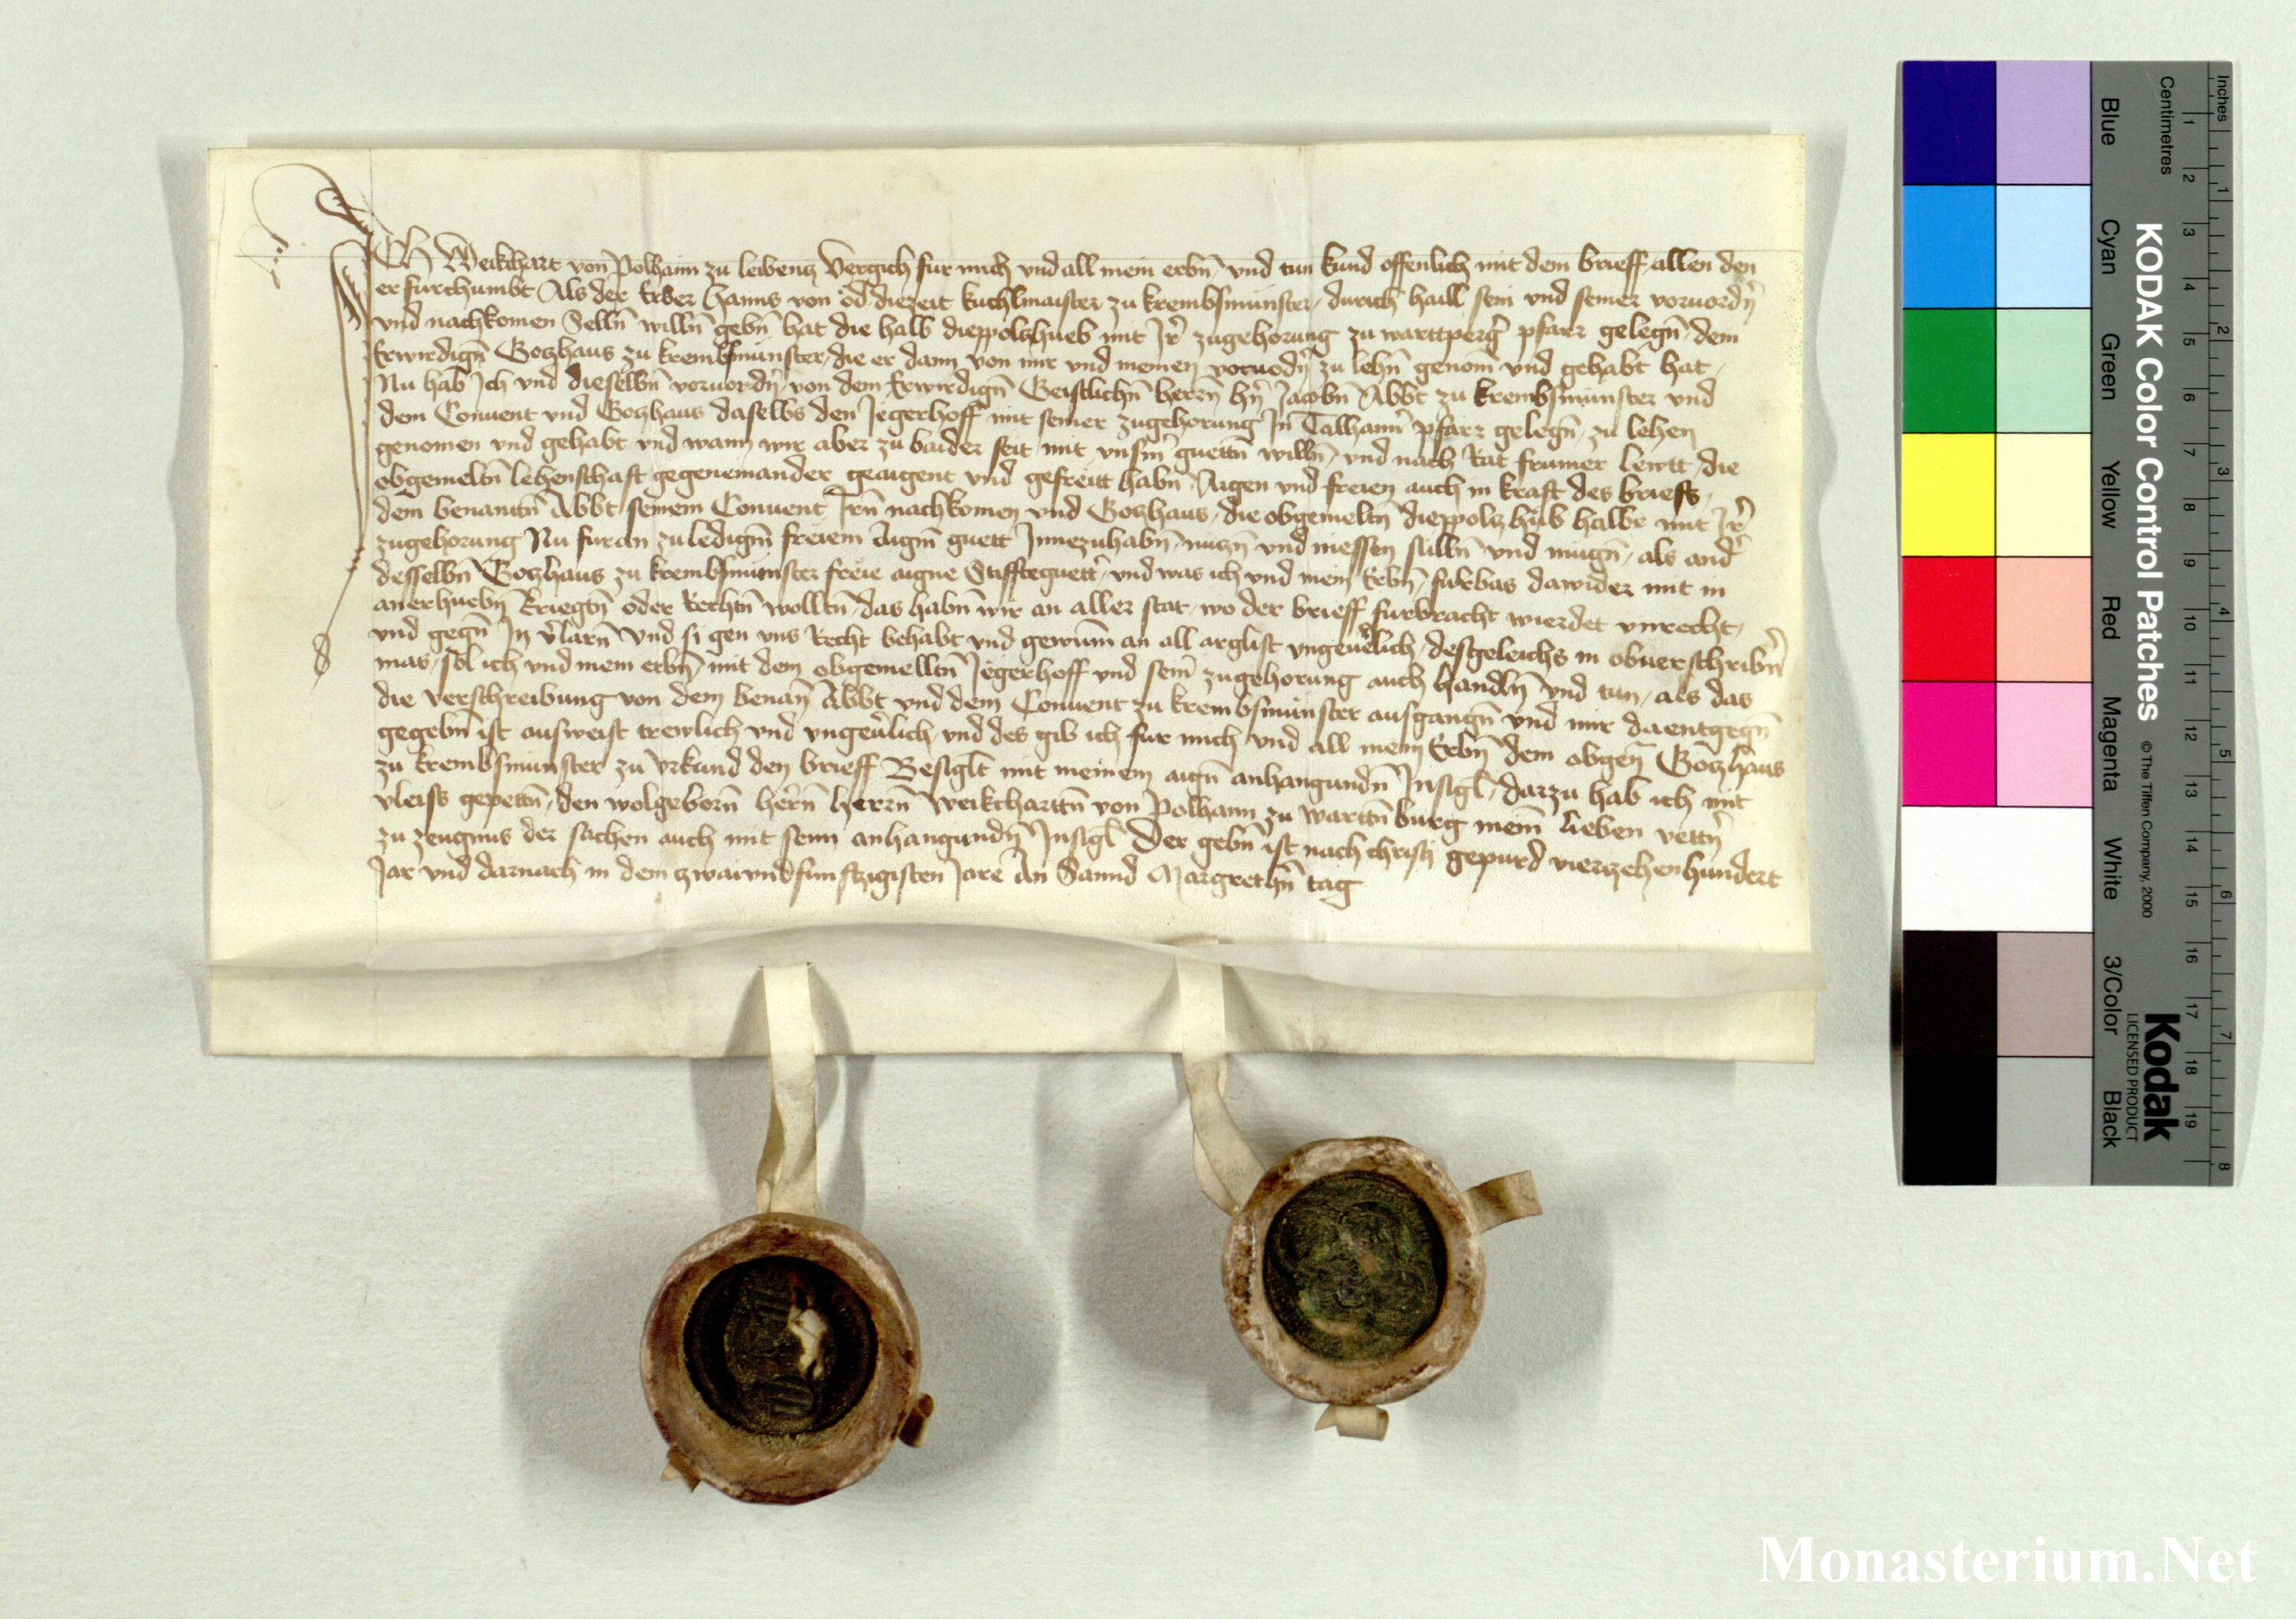 Ich Weikchart von Polhaim zu leibencz Vergich fur mich vnd all mein erbn̄ vnd tun kund offenlich mit dem brieff allen den
er furchumbt Als der Erber Hanns von öd diezeit kuchlmaister zu krembsmünster durich haill sein vnd seiner voruordn̄
vnd nachkomen Selln̄ willn̄ gebn̄ hat die halb diepolczhueb mit Jr̄ zugehorung zu warttperḡ pfarr gelegn̄ dem
Erwirdign̄ Goczhaus zu krembsmünster die er dann von mir vnd meinen voruodn̄ zu lehn̄ genom̄ vnd gehabt hat
Nu hab Ich vnd dieselbn̄ voruordn̄ von dem Erwirdign̄ Geistlichn̄ herrn̄ hn̄ Jacobn̄ Abbt zu krembsmünster vnd
dem Conuent vnd Goczhaus daselbs den Jegerhoff mit seiner zugehorung In Talhaim̄ pfarr gelegn̄ zu lehen
genomen vnd gehabt vnd wann wir aber zu baider seit mit vnsm̄ guettn̄ willn̄ vnd nach Rat frumer lewtt die
obgemeltn̄ lehenschaft gegeneinander geaigent vnd gefreitt habn̄ Aigen vnd freien auch in kraft des brieffs
dem benantn̄ Abbt seinem Conuent Irn̄ nachkomen vnd Goczhaus die obgemeltn̄ diepolcz hüb halbe mit Jr̄
zugehorung Nu furan zu ledigm̄ freiem Aigm̄ guett Innezuhabn̄ nuczn̄ vnd niessen sulln̄ vnd mugn̄ als and̄
desselbn̄ Goczhaus zu krembsmünster freie aigne Stiffteguett̄ vnd was ich vnd mein Erbn̄ furbas dawider mit in
anerhuebn̄ kriegtn̄ oder Rechtn̄ wolltn̄ das habn̄ wir an aller stat wo der brieff furbracht wierdet vnrecht
vnd gegn̄ In v̄larn̄ vnd si gen vns Recht behabt vnd gewunn̄ an all arglist vngeuerlich desgeleichs in obuerschribn̄
mas sol ich vnd mein erbn̄ mit dem obgemelltn̄ Jegerhoff vnd seīn zugehorung auch handln̄ vnd tun als das
die verschreibung von dem benan̄ Abbt vnd dem Conuent zu krembsmünster ausgangn̄ vnd mir daentgegn̄
gegebn̄ ist ausweist trewlich vnd vngeu̅lich vnd des gib ich fur mich vnd all mein Erbn̄ dem obgen̄ Goczhaus
zu krembsmunster zu vrkund den brieff Besiglt mit meinem aign̄ anhangundn̄ Insigl darzu hab ich mit
vleiss gepettn̄ den wolgeborn̄ hern̄ herrn̄ Weikcharttn̄ von Polhaim zu warttn̄burg meīn lieben vettn̄
zu zeugnus der sachen auch mit seim anhangundn̄ Insigl Der gebn̄ ist nach christi gepurd vierczehenhundert
Jar vnd darnach in dem zwaiundfunfczigisten Jare An Sannd Margrethn̄ tag
Inches
Centimetres
KODAK Color Control Patches
© The Tiffen Company, 2000
Kodak
LICENSED PRODUCT
Blue
Cyan
Green
Yellow
Red
Magenta
White
3/Color
Black
1 2 3 4 5 6 7 8 9 10 11 12 13 14 15 16 17 18 19
1 2 3 4 5 6 7 8
Monasterium.Net